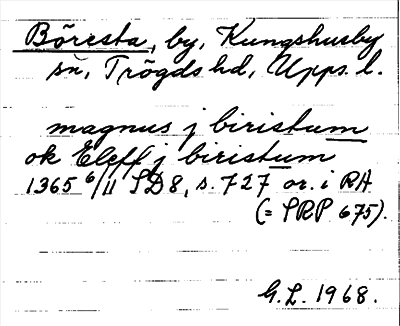 Böresta, by, Kungshusby
sn, Trögds hd, Upps. l.
magnus j biristum
ok Eleff j biristum
1365 6/11 SD8, s. 727 or. i RA
(= SRP 675).
G.L. 1968.